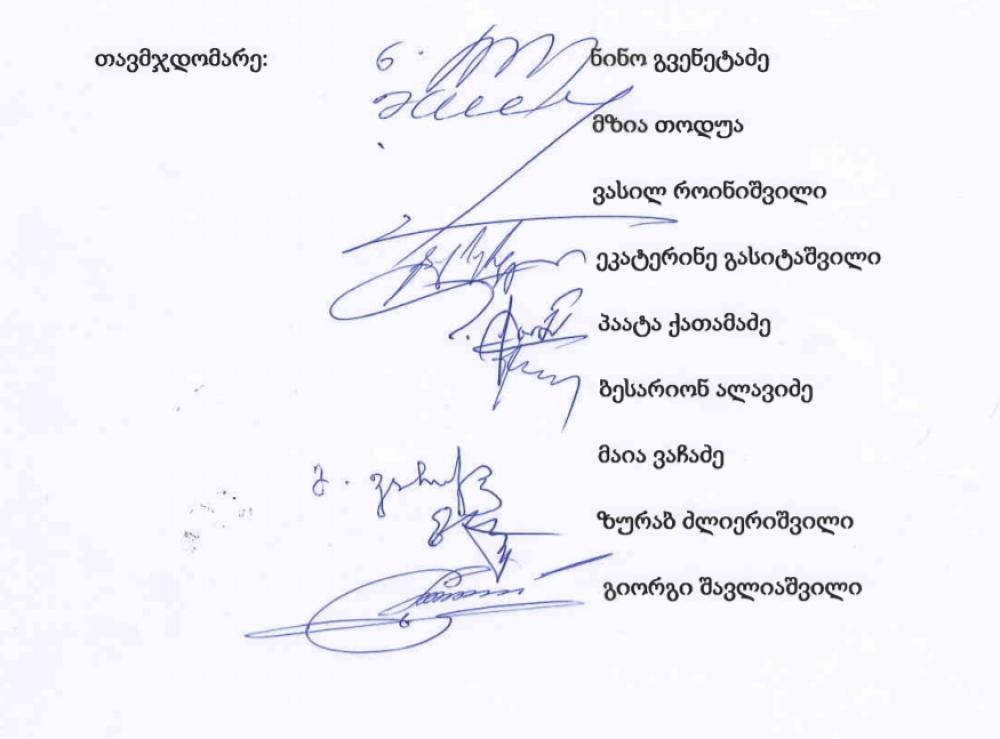 თავმჯდომარე: ნინო გვენეტაძე
მზია თოდუა
ვასილ როინიშვილი
ეკატერინე გასიტაშვილი
პაატა ქათამაძე
ბესარიონ ალავიძე
მ. ვაჩაძ
მაია ვაჩაძე
ზურაბ ძლიერიშვილი
გიორგი შავლიაშვილი